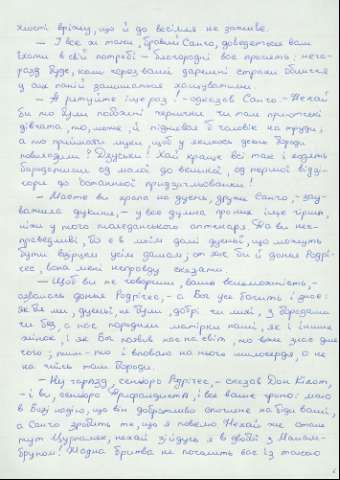 хвості врікну, що й до весілля не заживе.
— І все ж таки, бравий Санчо, доведеться вам
їхати в сій потребі — благородні вас просять; него-
разд буде, коли через ваші даремні страхи
у цих паній залишаться
— А рятуйте іще раз! — одказав Санчо. — Нехай
би то були побожні чернички чи там приютські
дівчата, то, може, й піднявся б чоловік на труди,
а то приймати муки, щоб у якихось дуень бороди
повилазили? Дзуськи! Хай краще всі так і ходять
бородатими од малої до великої, од першої
до останньої
— Маєте ви храпа на дуень, друже Санчо, — зау-
важила дукиня, — у вас думка про них іще гірша,
ніж у того толедського аптекаря. Та ви нес-
праведливі, бо є в моїм домі дуеньї, що можуть
бути взірцем усім дамам; от хоч би й донья Родрі-
гес, вона мені неправду сказати
— Щоб ви не говорили, ваша вельможність, —
озвалась донья Родрігес, — а Бог усе бачить і знає:
які би ми, дуеньї, не були, добрі чи лихі, з бородами
чи без, а нас породили матірки наші, як і інших
жінок, і як Бог позвів нас на світ, то вже знає для
чого; тим-то і вповаю на його милосердя, а не
на чиїсь там бороди.
— Ну гаразд, сеньйоро Родрігес, — сказав Дон Кіхот,
— і ви, сеньйоро Трифальдистк, і все ваше гроно: маю
в Бозі надію, що він добротливо спогляне на біди ваші,
а Санчо зробить те, що я повелю. Нехай же стане
тут Цурпалек, нехай зійдусь я в двобої з Малам-
бруном! Жодна бритва не поголить вас із такою